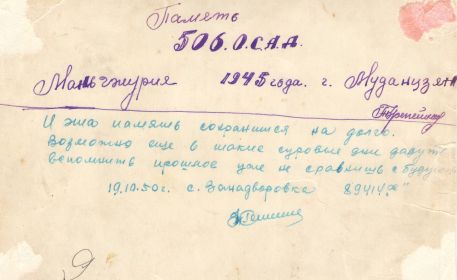 Память
506.О.С.А.Д.
Маньчжурия 1945 года. г. Муданцзян
И эта память сохранится на долго.
Возможно еще в такие суровые дни
вспомнить прошлое уже не сравнишь с будущ
19.10.50г. с. Занадворовка 89414 "Ж"